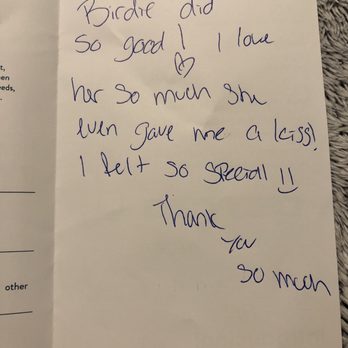 Birdie did
so good! I love
♡
her so much she
even gave me a kiss!
I felt so special!!
Thank
you
so much
t,
en
eds,
.
other